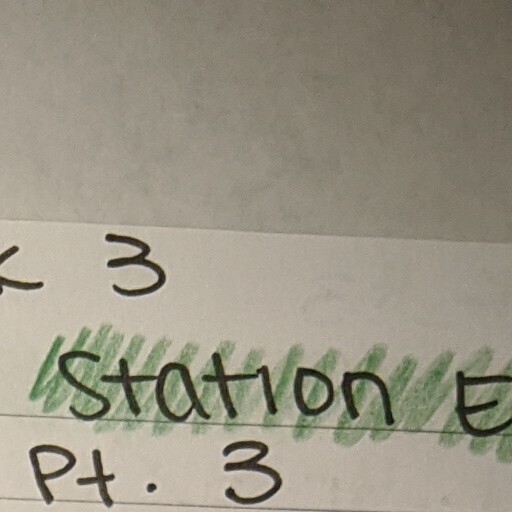 3
Station E
Pt. 3